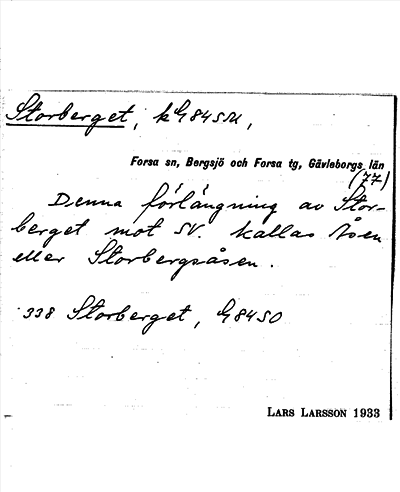 Storberget, k G845M,
Forsa sn, Bergsjö och Forsa tg, Gävleborgs län
(77)
Denna förlängning av Stor-
berget mot SV. kallas Åsen
eller Storbergsåsen.
338 Storberget, G8450
LARS LARSSON 1933